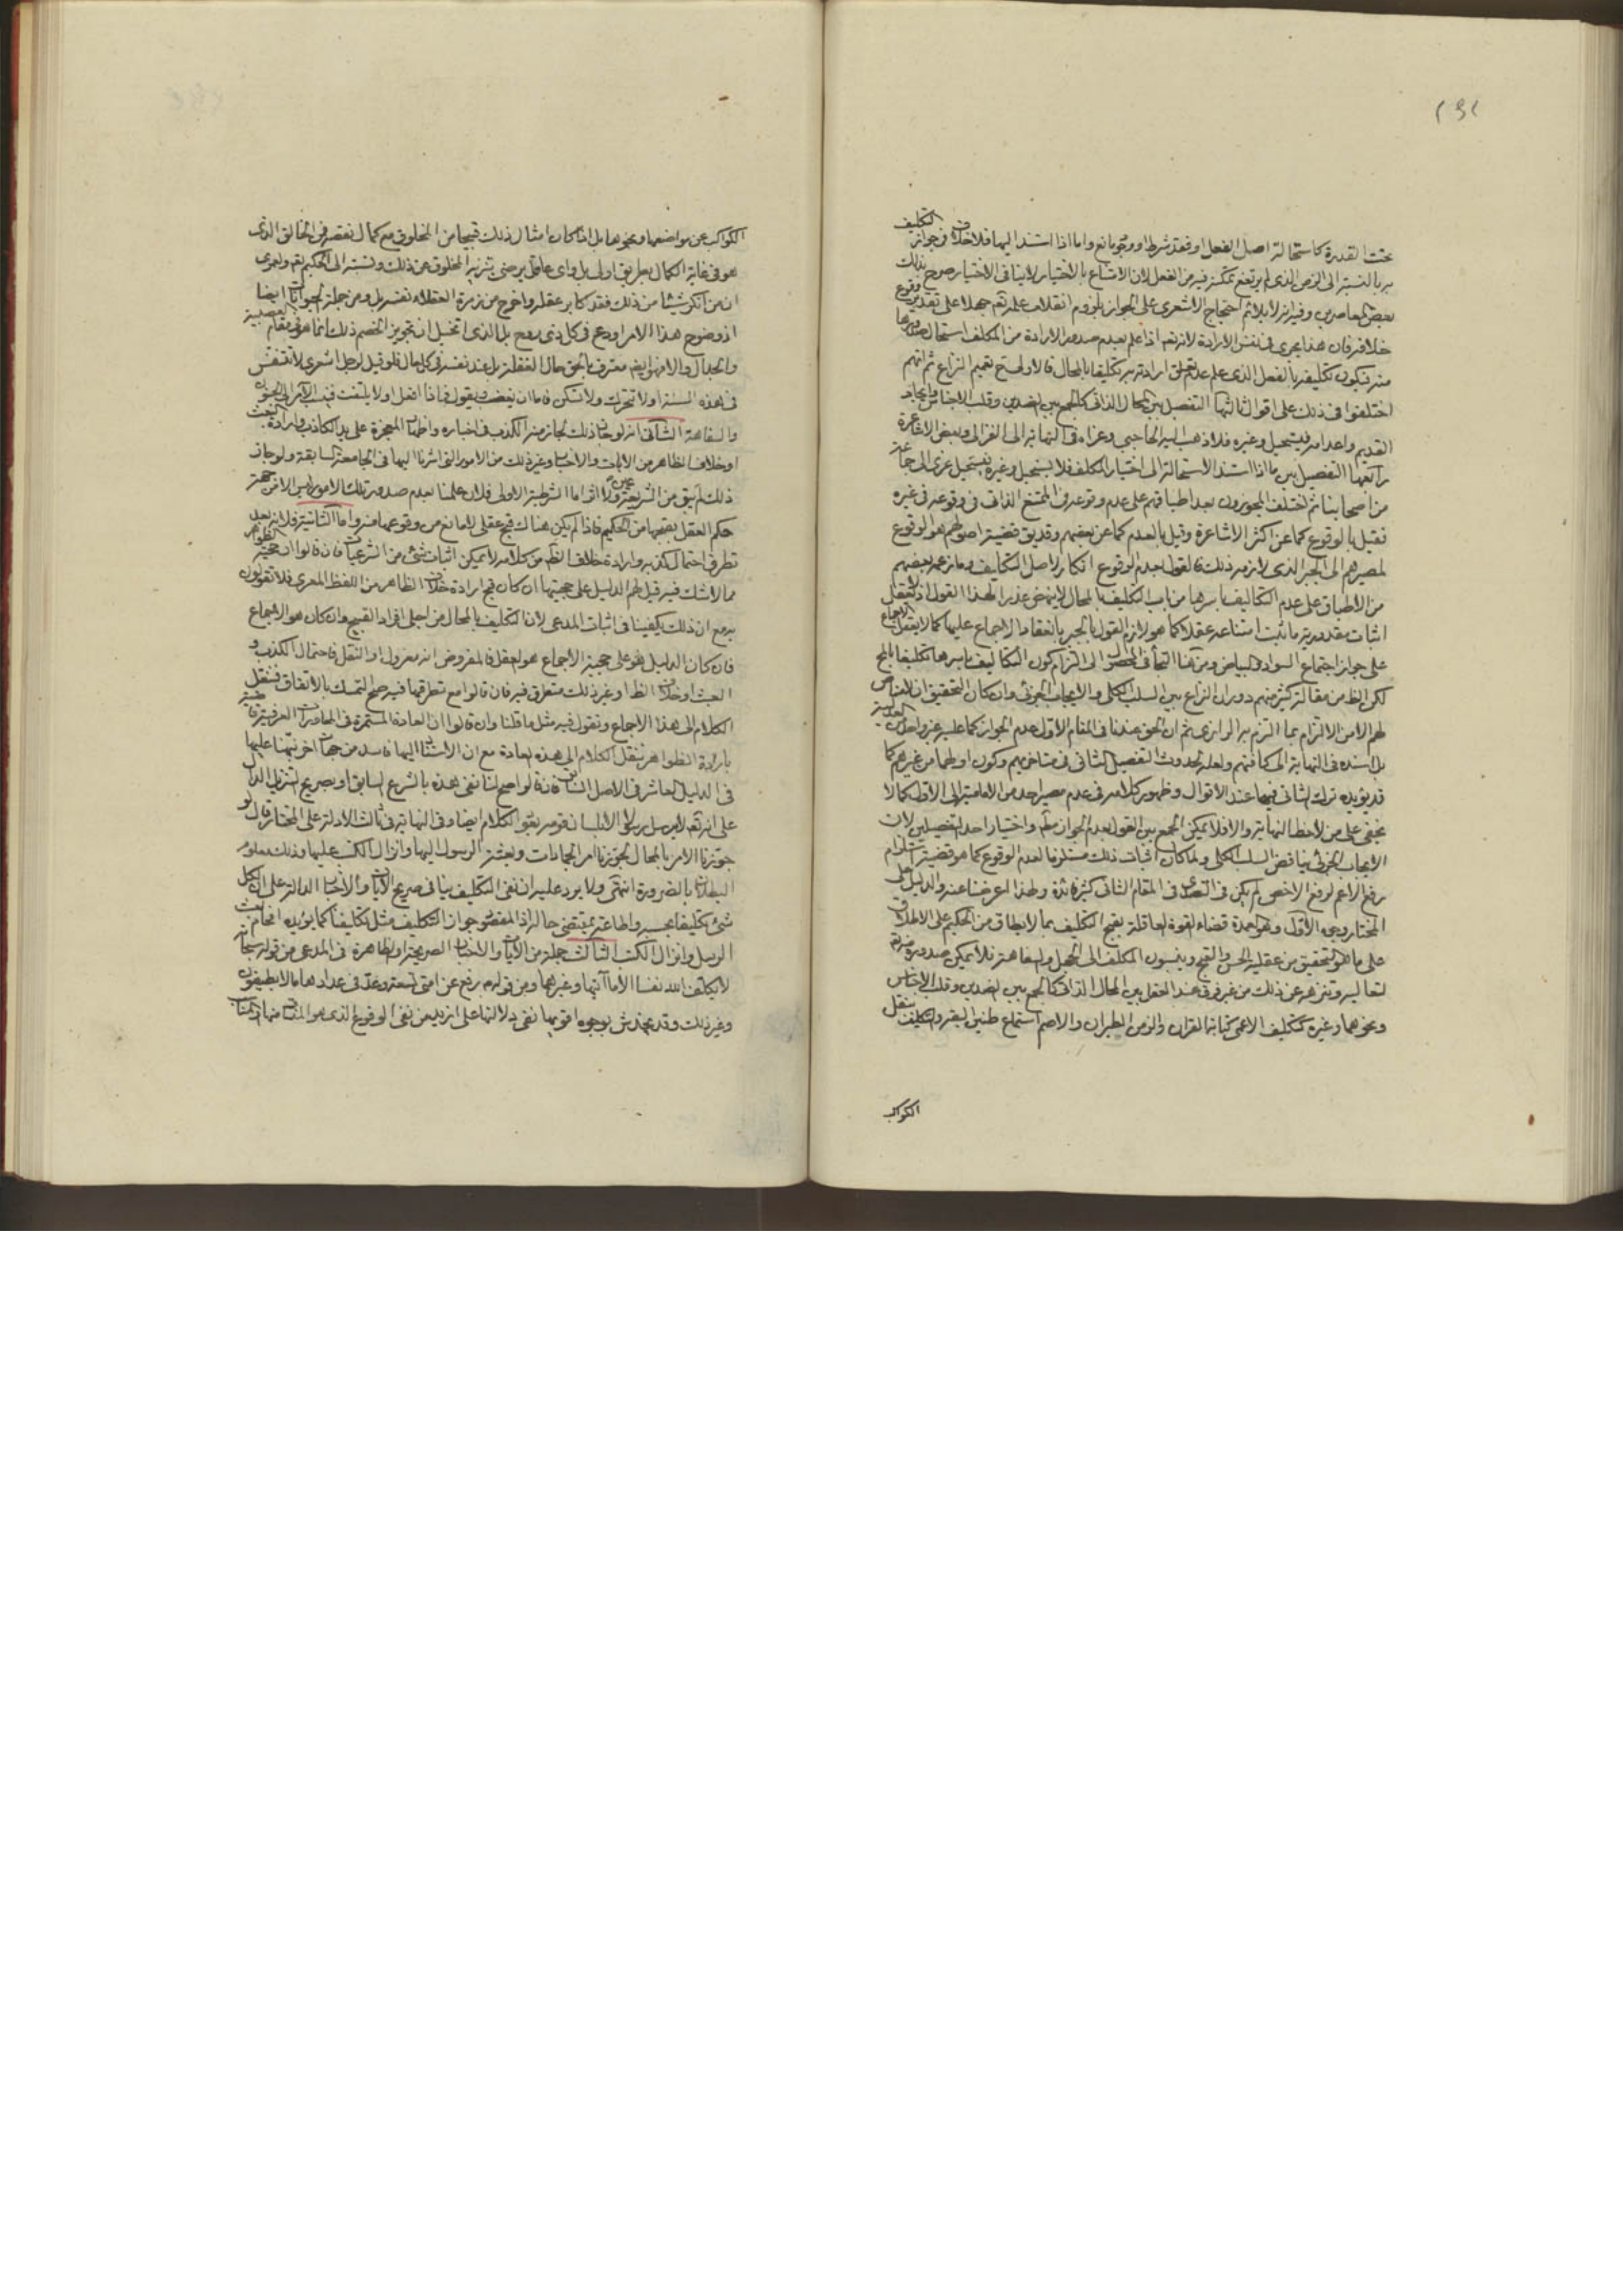 تحت القدرة كاستحالة اصل الفعل او فقد شرط او وجود مانع واما اذا استند اليها فلا خلاف فى جواز التكليف
به بالنسبة الى الزمن الذى لم يرتفع تمكنه فيه من الفعل لان الامتناع بالاختيار لا ينافى الاختيار صرح بذلك
بعض المعاصرين وفيه انه لا يلائم احتجاج الاشعرى على الجواز بلزوم انقلاب علمه تعم جهلا على تقدير وقوع
خلافه فان هذا يجرى فى نفس الارادة لانه تعم اذا علم بعدم صدور الارادة من المكلف استحال صدورها
منه فيكون تكليفه بالفعل الذى علم عدم تعلق ارادته به تكليفا بالمحال فالاولى ح تعميم النزاع ثم انهم
اختلفوا فى ذلك على اقوال ثالثها التفصيل بين المحال الذاتى كالجمع بين الضدين وقلب الاجناس وايجاد
القديم واعدامه فيستحيل وغيره فلا ذهب اليه الحاجبى وعزاه فى النهاية الى الغزالى وبعض الاشاعرة
رابعها التفصيل بين ما اذا استند الاستحالة الى اختيار المكلف فلا يستحيل وغيره فيستحيل عزى الى جماعة
من اصحابنا ثم اختلف المجوزون بعد اطباقهم على عدم وقوعه فى الممتنع الذاتى فى وقوعه فى غيره
فقيل بالوقوع كما عن اكثر الاشاعرة وقيل بالعدم كما عن بعضهم وقد يق قضية اصولهم هو الوقوع
لمصيرهم الى الجبر الذى لازمه ذلك فالقول بعدم الوقوع انكار لاصل التكاليف وما زعمه بعضهم
من الاطباق على عدم التكاليف باسرها من باب التكليف بالمحال لا ينهض عذرا لهذا القول اذ لا يعقل
اثبات مقدورية ما ثبت امتناعه عقلا كما هو لازم القول بالجبر بانعقاد الاجماع عليها كما لا يعقل الاجماع
على جواز اجتماع السواد والبياض ومن هنا التجأ فى المحصول الى التزام كون التكاليف باسرها تكليفا بالمح
لكن الظ من مقالة كثير منهم دوران النزاع بين السلب الكلى والايجاب الجزئى وان كان التحقيق ان لا مناص
لهم الا من الالتزام بما التزم به الرازى ثم ان الحق عندنا فى المقام الاول عدم الجواز كما عليه غير واحد من العدلية
بل اسنده فى النهاية الى كافتهم ولعله لحدوث التفصيل الثانى فى متاخريهم وكون اولهما من غيرهم كما
قد يؤيده ترك الثانى فيها عند الاقوال وظهور كلامه فى عدم مصير احد من الامامية الى الاول كما لا
يخفى على من لاحظ النهاية والا فلا يمكن الجمع بين القول بعدم الجواز مطم واختيار احد التفصيلين لان
الايجاب الجزئى يناقض السلب الكلى ولما كان اثبات ذلك مستلزما لعدم الوقوع كما هو قضية استلزام
رفع الاعم لرفع الاخص لم يكن فى التعرض فى المقام الثانى كثير فائدة ولهذا اعرضنا عنه والدليل على
المختار وجوه الاول وهو العمدة قضاء القوة العاقلة بقبح التكليف بما لا يطاق من الحكيم على الاطلاق
على ما هو التحقيق من عقلية الحسن والقبح وينسبون المكلف الى الجهل والسفاهة فلا يمكن صدوره منه تعم
لتعاليه وتنزهه عن ذلك من غير فرق عند العقل بين المحال الذاتى كالجمع بين الضدين وقلب الاجناس
ونحوهما وغيره كتكليف الاعمى كتابة القران والزمن الطيران والاصم استماع طنين البقر والتكليف بنقل
الكواكب
الكواكب عن مواضعها ونحوها بل اذا كان امثال ذلك قبيحا من المخلوق مع كمال نقصه فمن الخالق الذى
هو فى غاية الكمال بطريق اولى بل واى عاقل يرضى بتنزيه المخلوق عن ذلك ونسبته الى الحكيم تعم ولعمرى
ان من انكر شيئا من ذلك فقد كابر عقله واخرج من زمرة العقلاء نفسه بل ومن جملة الحيوانات ايضا
اذ وضوح هذا الامر اودع فى كل ذى روح بل الذى اتخيل ان تجويز الخصم ذلك انما هو فى مقام العصبية
والجدال والا فهو ايضم معترف بالحق حال الغفلة بل عند نفسه فى كل حال فلو قيل لرجل اشعرى لا تتنفس
فى هذه السنة او لا تتحرك ولا تسكن فاما ان يغضب ويقول فماذا افعل او لا يلتفت فينسب الامر الى الجنون
والسفاهة الثانى انه لو جاز ذلك لجاز منه الكذب فى اخباره واظهار المعجزة على يد الكاذب وارادة البعث
او خلاف الظاهر من الايات والاخبار وغير ذلك من الامور التى اشرنا اليها فى الجامعة السابقة ولو جاز
ذلك لم يبق من الشريعة عين ولا اثر اما الشرطية الاولى فلان علمنا بعدم صدور تلك الامور ليس الا من جهة
حكم العقل بقبحها من الحكيم فاذا لم يكن هناك قبح عقلى لا مانع من وقوعها منه واما الثانية فلانه بعد
تطرق احتمال كذبه وارادة خلاف الظم من كلامه لا يمكن اثبات شئ من الشرعيات فان قالوا ان حجية الظواهر
مما لا شك فيه قيل لهم الدليل على حجيتها ان كان قبح ارادة خلاف الظاهر من اللفظ المعرى فلا تقولون
به مع ان ذلك يكفينا فى اثبات المدعى لان التكليف بالمحال من اجلى افراد القبيح وان كان هو الاجماع
فان كان الدليل هو على حجية الاجماع هو العقل فالمفروض انه معزول او النقل فاحتمال الكذب و
العبث او خلاف الظا وغير ذلك متطرق فيه فان قالوا مع تطرقها فيه صح التمسك بالاتفاق فننقل
الكلام الى هذا الاجماع ونقول فيه مثل ما قلنا وان قالوا ان العادة المستمرة فى المحاورات العرفية قاضية
بارادة الظواهر ننقل الكلام الى هذه العادة مع ان الاستناد اليها فاسد من جهات اخر نبهنا عليها
فى الدليل العاشر فى الاصل السابق فان قالوا صح لنا نفى هذه بالشرع السابق او بصريح التنزيل الدال
على انه تعم لا يرسل رسولا الا بلسان قومه بقى الكلام ايضا وفى النهاية فى ثالث الادلة على المختار قال لو
جوزنا الامر بالمحال لجوزنا امر الجمادات وبعثة الرسول اليها وانزال الكتب عليها وذلك معلوم
البطلان بالضرورة انتهى ولا يرد عليه ان نفى التكليف ينافى صريح الايات والاخبار الدالة على ان لكل
شئ تكليفا بحسبه واطاعة بمقتضى حاله اذ المقصود جواز التكليف مثل تكليفنا كما يؤيده انضمام بعث
الرسل وانزال الكتب الثالث جملة من الايات والاخبار الصريحة او الظاهرة فى المدعى من قوله سبحانه
لا يكلف الله نفسا الا ما آتيها وغيرهما ومن قولهم رفع عن امتى تسعة وعد فى عدادها ما لا يطيقون
وغير ذلك وقد يخدش بوجوه اقويها نفى دلالتها على ازيد من نفى الوقوع الذى هو المتيقن منها